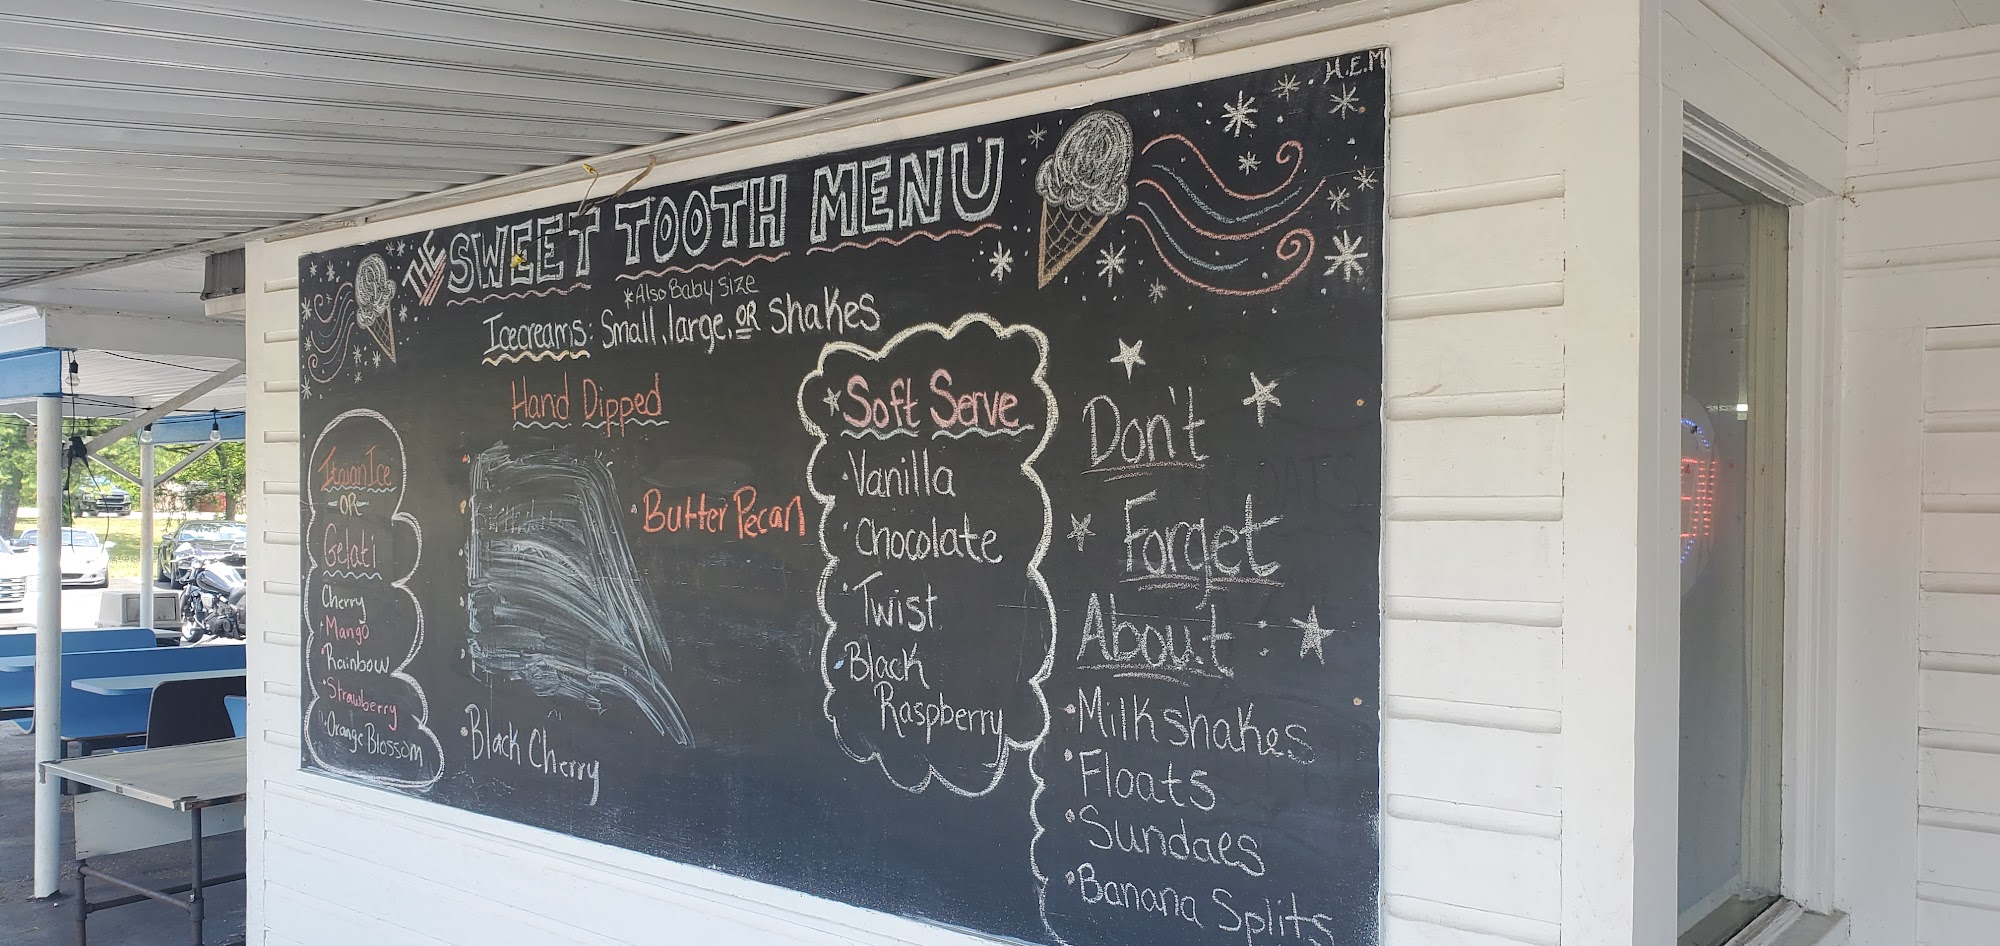 H.E.M
THE SWEET TOOTH MENU
*Also Baby size
Icecreams: Small, large, OR Shakes
Italian Ice
-OR-
Gelati
Cherry
• Mango
Rainbow
• Strawberry
• Orange Blossom
Hand Dipped
• Butter Pecan
• Black Cherry
* Soft Serve
• Vanilla
• Chocolate
• Twist
• Black
Raspberry
Don't
Forget
About
• Milkshakes
• Floats
• Sundaes
• Banana Splits